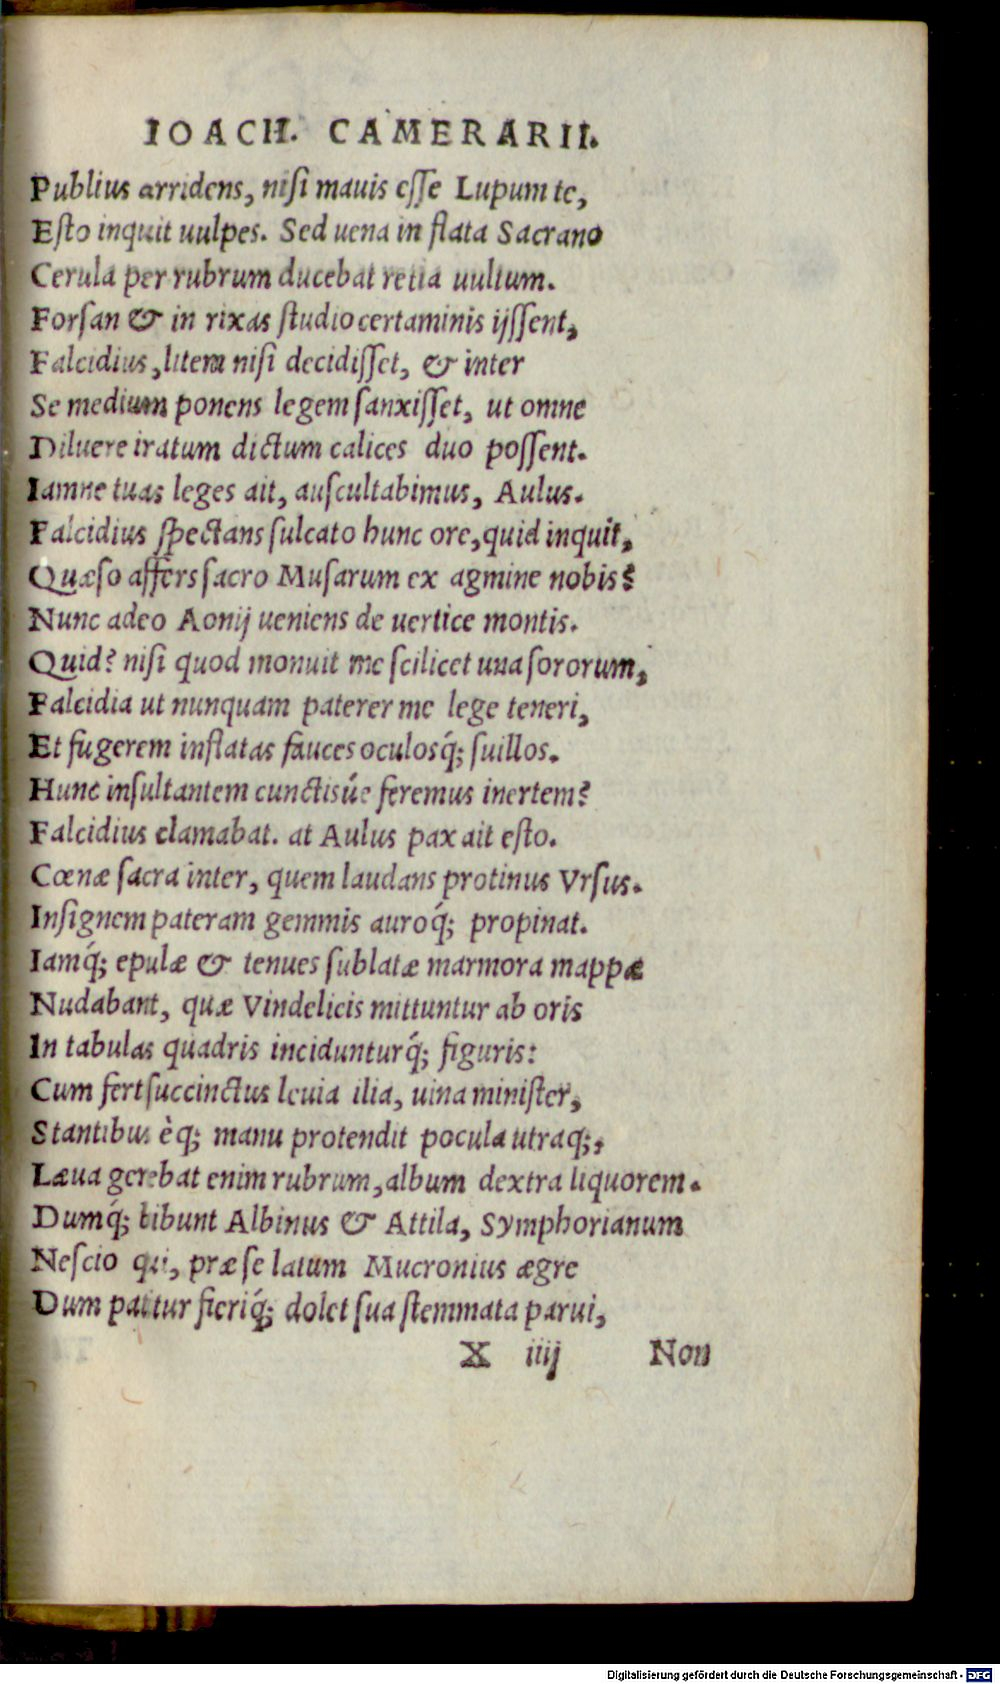 IOACH. CAMERARII.
Publius arridens, niſi mauis eſſe Lupum te,
Eſto inquit uulpes. Sed uena in flata Sacrano
Cerula per rubrum ducebat retia uultum.
Forſan & in rixas ſtudio certaminis ijſſent,
Falcidius, litem niſi decidiſſet, & inter
Se medium ponens legem ſanxiſſet, ut omne
Diluere iratum dictum calices duo poſſent.
Iamne tuas leges ait, auſcultabimus, Aulus.
Falcidius ſpectans ſulcato hunc ore, quid inquit,
Quæſo affers ſacro Muſarum ex agmine nobis?
Nunc adeo Aonij ueniens de uertice montis.
Quid? niſi quod monuit me ſcilicet una ſororum,
Falcidia ut nunquam paterer me lege teneri,
Et fugerem inflatas fauces oculosq́; ſuillos.
Hunc inſultantem cunctisúe feremus inertem?
Falcidius clamabat. at Aulus pax ait eſto.
Cœnæ ſacra inter, quem laudans protinus Vrſus.
Inſignem pateram gemmis auroq́; propinat.
Iamq́; epulæ & tenues ſublatæ marmora mappæ
Nudabant, quæ Vindelicis mittuntur ab oris
In tabulas quadris inciduntur q́; figuris:
Cum fert ſuccinctus leuia ilia, uina miniſter,
Stantibus èq; manu protendit pocula utraq;,
Læua gerebat enim rubrum, album dextra liquorem.
Dumq́; bibunt Albinus & Attila, Symphorianum
Neſcio qui, præ ſe latum Mucronius ægre
Dum patitur fieriq́; dolet ſua ſtemmata parui,
X iiij Non
Digitalisierung gefördert durch die Deutsche Forschungsgemeinschaft - DFG